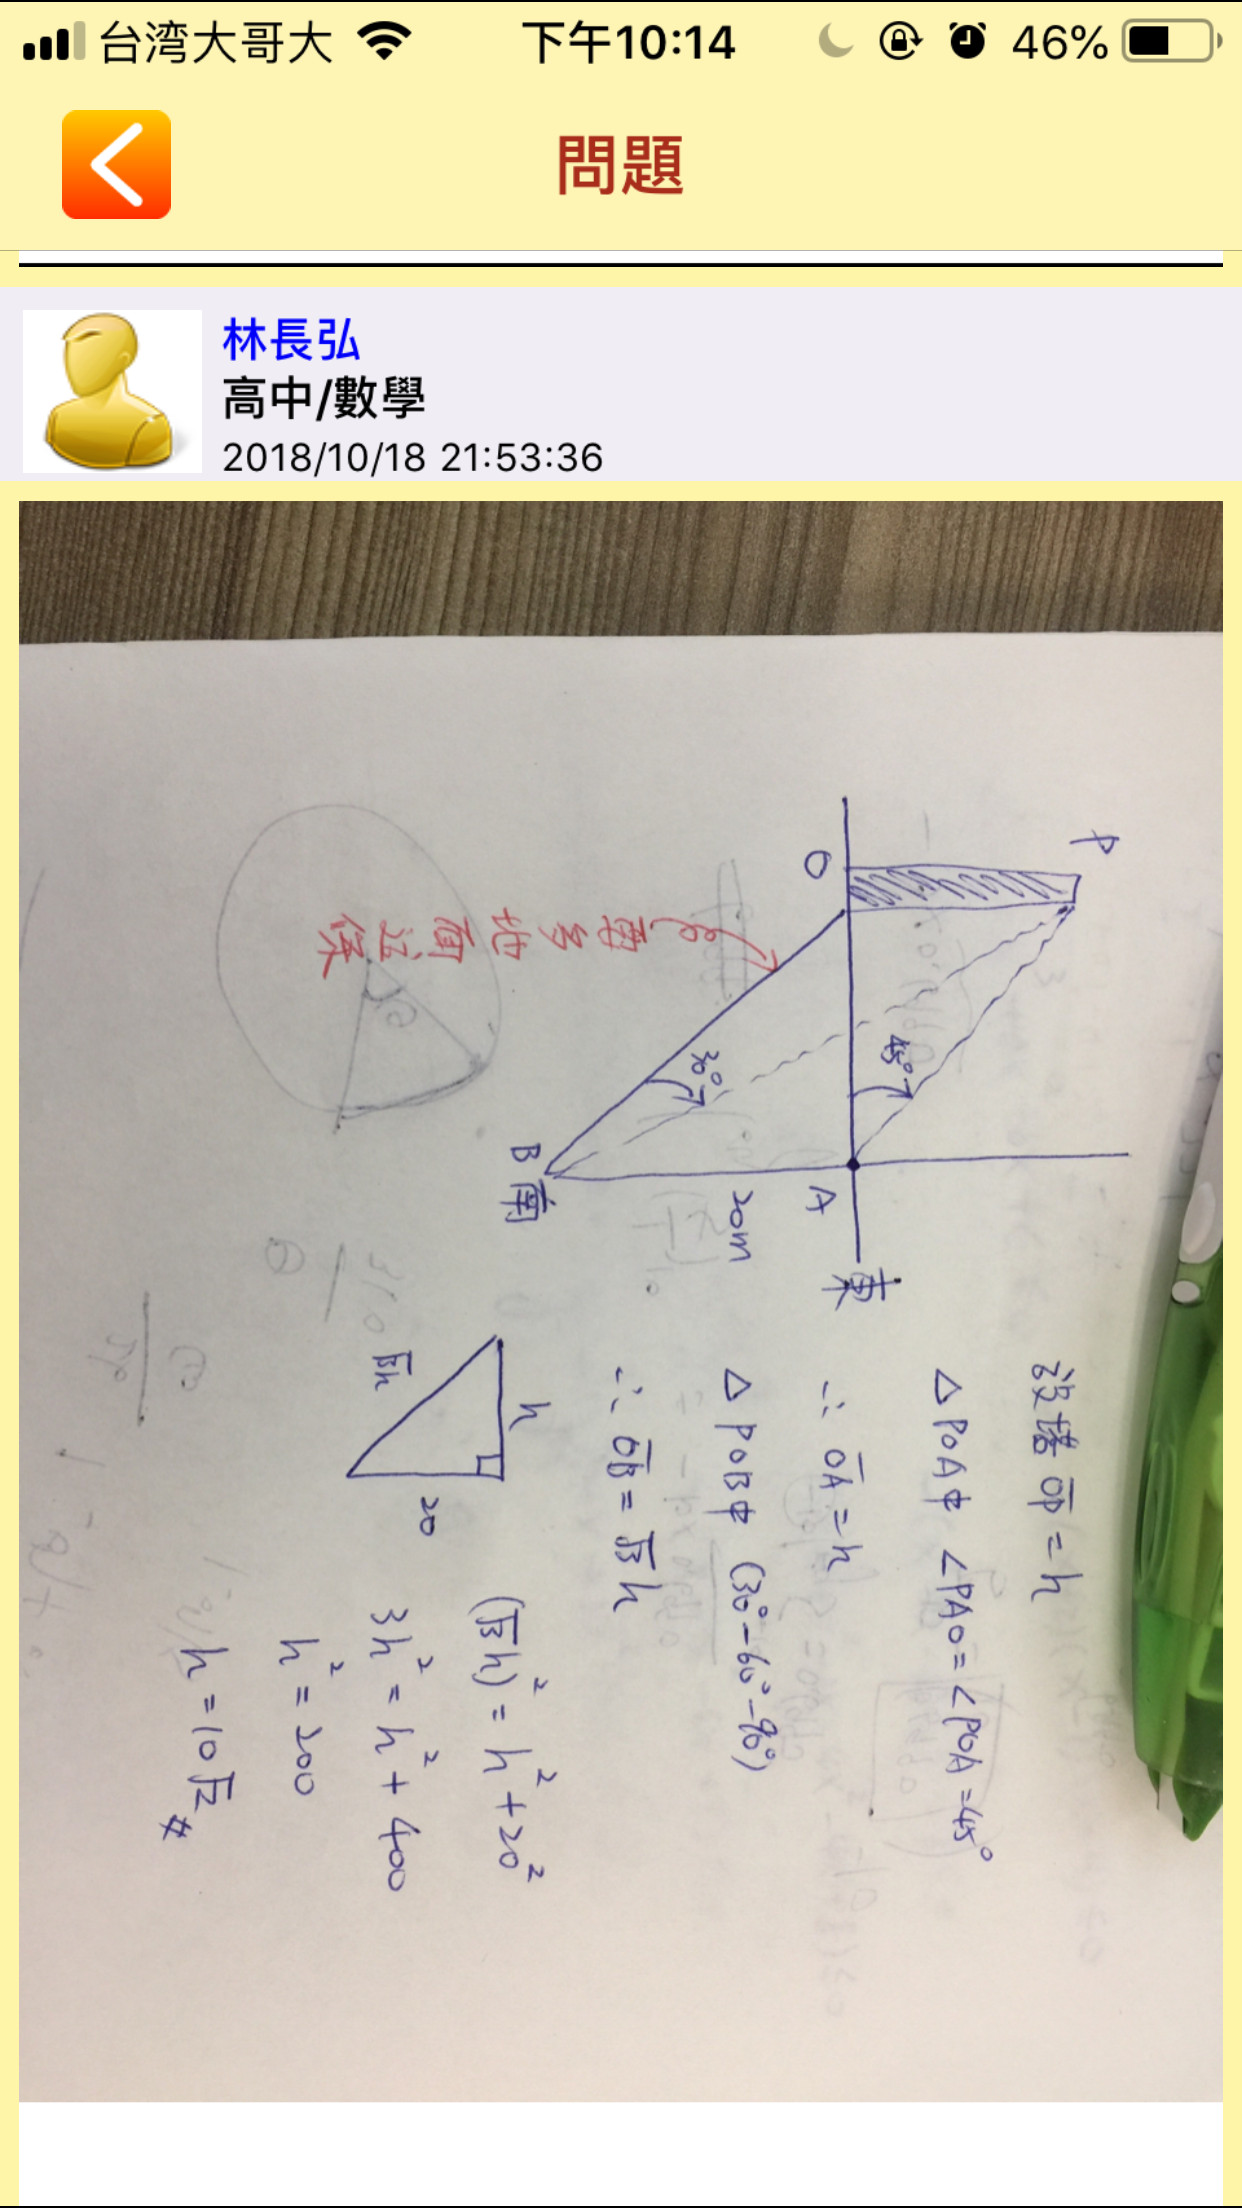 台湾大哥大
下午10:14
46%
問題
林長弘
高中/數學
2018/10/18 21:53:36
P
O
45°
30°
A
東
20m
B南
需多地面這條
設塔 OP = h
△POA中 ∠PAO = ∠POA = 45°
∴ OA = h
△POB中 (30°-60°-90°)
∴ OB = √3 h
h
√3h
20
(√3h)² = h² + 20²
3h² = h² + 400
h² = 200
h = 10√2 #